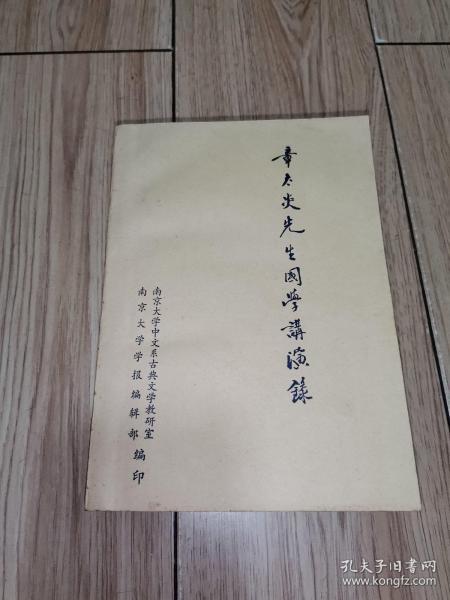 章太炎先生國學講演錄
南京大学中文系古典文学教研室
南京大学学报编辑部编印
孔夫子旧书网
www.kongfz.com